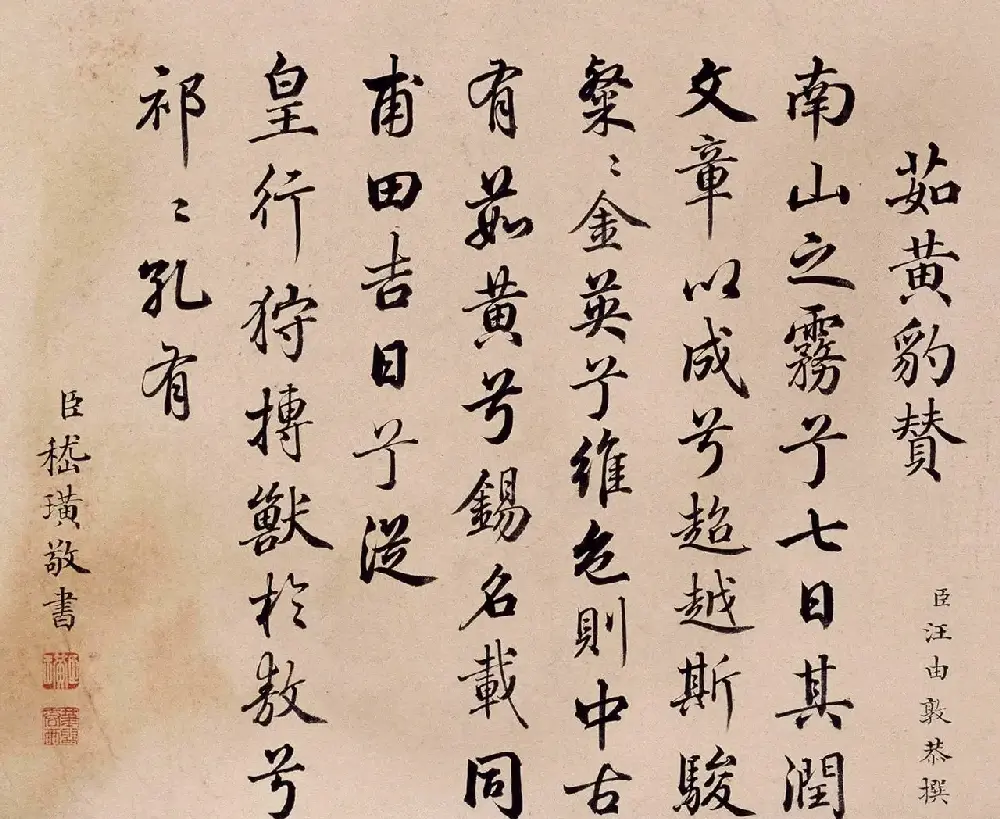 茹黄豹賛
臣汪由敦恭撰
南山之霧兮七日其潤
文章以成兮超越斯駿
粲〻金英兮維色則中古
有茹黄兮錫名載同
甫田吉日兮從
皇行狩搏獸於敖兮
祁〻孔有
臣嵇璜敬書